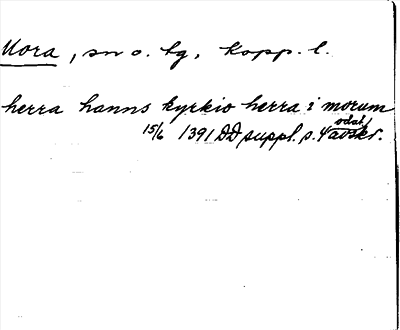 Mora, sn o. tg, Kopp. l.
herra hanns kyrkio herra i morum
15/6 1391 DD suppl. s. 4 avskr.
odat.